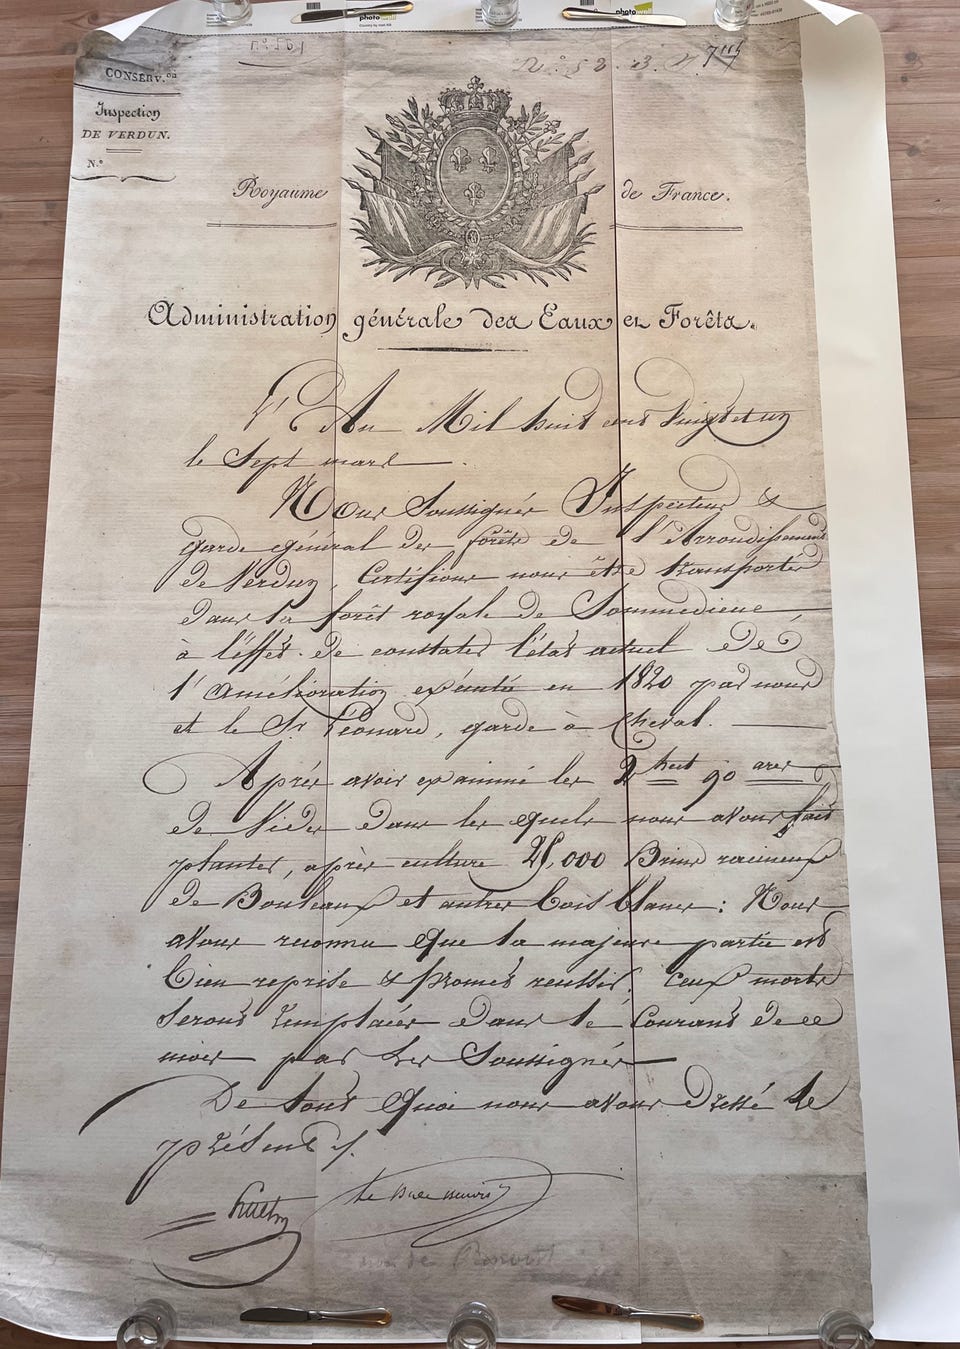 photowall
photowall
CONSERV.on
N.o 561
N.o 52.
Inspection
DE VERDUN.
N.o
Royaume de France.
Administration générale des Eaux et Forêts.
L'An Mil huit cent Vingt et un
le Sept mars
Nous Soussignés Inspecteur &
garde général des forêts de l'Arrondissement
de Verdun, Certifions nous être transportés
dans la forêt royale de Sommedieue,
à l'effet de constater l'état actuel de
l'amélioration exécutée en 1820 par nous
et le Sr Léonard, garde à Cheval.
Après avoir examiné les 2 hect 90 ares
de Vides dans les quels nous avons fait
planter, après culture 25,000 Brins racineux
de Bouleaux et autres bois blancs: Nous
avons reconnu que la majeure partie est
bien reprise & promet reussir. Ceux morts
seront remplacés dans le Courant de ce
mois par les Soussignés
De tout quoi nous avons dressé le
présent